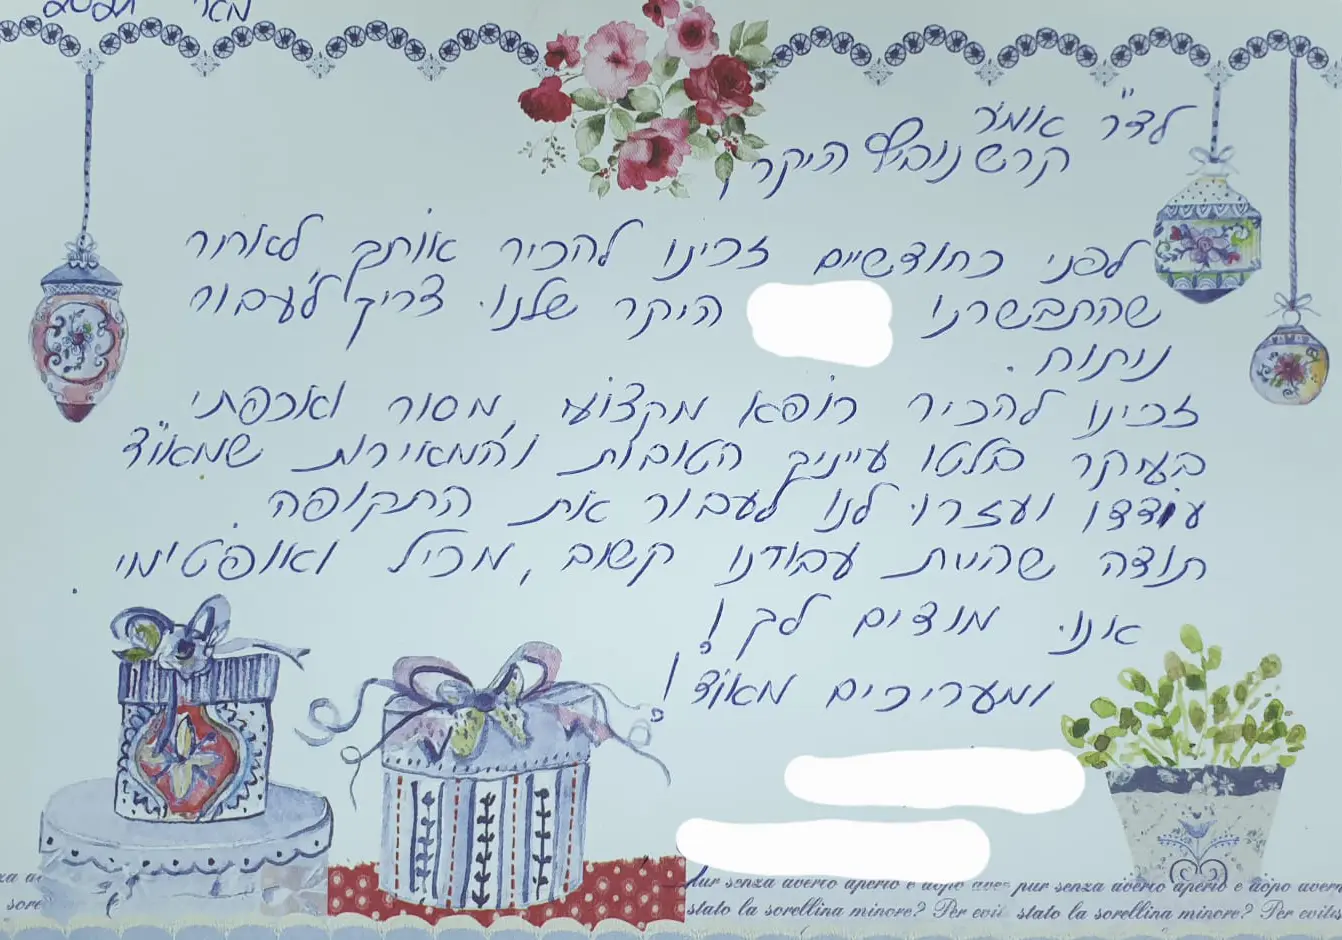 מאי 2021
לד"ר אומר
קרשנוביץ היקר,
לפני כחודשיים זכינו להכיר אותך לאחר
שהתבשרנו היקר שלנו צריך לעבור
ניתוח.
זכינו להכיר רופא מקצועי, מסור ואכפתי
בעיקר בלטו עייניך הטובות והמאירות שמאוד
עודדו ועזרו לנו לעבור את התקופה.
תודה שהיית עבורנו קשוב, מכיל ואופטימי.
אנו מודים לך!
ומעריכים מאוד!
pur senza averlo aperto e dopo aver pur senza averlo aperto e dopo aver
stato la sorellina minore? Per evit stato la sorellina minore? Per evit